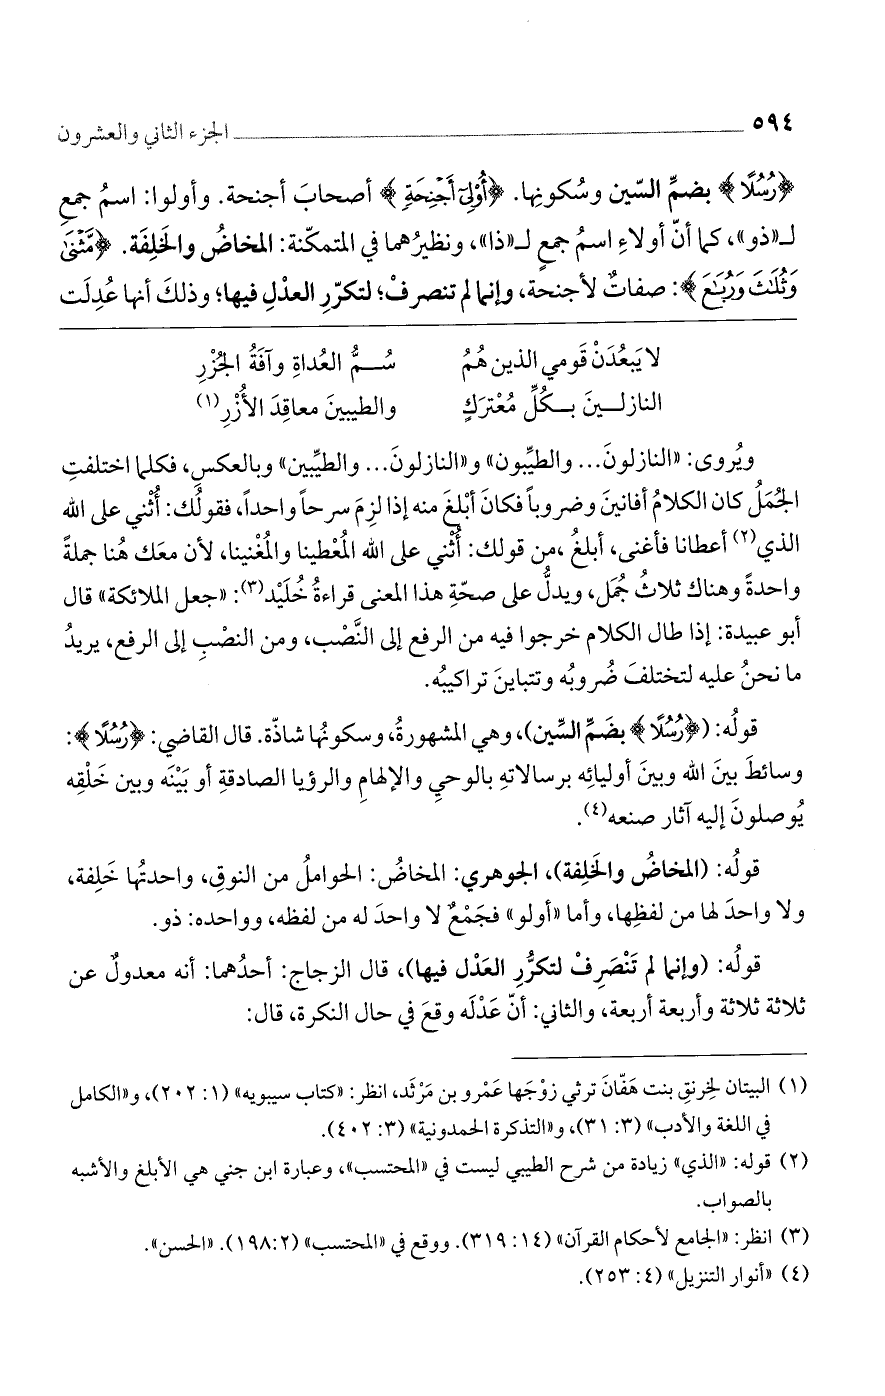 ٥٩٤ الجزء الثاني والعشرون
﴿رُسُلًا﴾ بضمِّ السّين وسُكونِها. ﴿أُوْلِىٓ أَجْنِحَةٍ﴾ أصحابَ أجنحة. وأولوا: اسمُ جمعٍ
لـ«ذو»، كما أنّ أولاءِ اسمُ جمعٍ لـ«ذا»، ونظيرُهما في المتمكّنة: المخاضُ والخَلِفَة. ﴿مَّثْنَىٰ
وَثُلَٰثَ وَرُبَٰعَ﴾: صفاتٌ لأجنحة، وإنما لم تنصرفْ؛ لتكرّرِ العدْلِ فيها؛ وذلكَ أنها عُدِلَت
لا يَبعُدَنْ قَومي الذين هُمُ سُــمُّ العُداةِ وآفَةُ الجُزْرِ
النازلــينَ بــكُلِّ مُعْترَكٍ والطيبينَ معاقِدَ الأُزْرِ(١)
ويُروى: «النازلونَ... والطيِّبون» و«النازلونَ... والطيِّبين» وبالعكسِ، فكلما اختلفتِ
الجُمَلُ كان الكلامُ أفانينَ وضروباً فكانَ أبْلغَ منه إذا لزِمَ سرحاً واحداً، فقولُك: أُثْني على الله
الذي(٢) أعطانا فأغنى، أبلغُ ،من قولك: أُثْني على الله المُعْطينا والمُغْنينا، لأن معَك هُنا جملةً
واحدةً وهناك ثلاثُ جُمَل، ويدلُّ على صحّةِ هذا المعنى قراءةُ خُلَيْد(٣): «جعل الملائكة» قال
أبو عبيدة: إذا طال الكلام خرجوا فيه من الرفع إلى النَّصْب، ومن النصْبِ إلى الرفع، يريدُ
ما نحنُ عليه لتختلفَ ضُروبُه وتتباينَ تراكيبُه.
قولُه: (﴿رُسُلًا﴾ بضَمِّ السِّين)، وهي المشهورةُ، وسكونُها شاذّة. قال القاضي: ﴿رُسُلًا﴾:
وسائطَ بينَ الله وبينَ أوليائِه برسالاتهِ بالوحيِ والإلهامِ والرؤيا الصادقةِ أو بَيْنَه وبين خَلْقِه
يُوصلونَ إليه آثار صنعه(٤).
قولُه: (المخاضُ والخَلِفة)، الجوهري: المخاضُ: الحواملُ من النوقِ، واحدتُها خَلِفة،
ولا واحدَ لها من لفظِها، وأما «أولو» فجَمْعٌ لا واحدَ له من لفظه، وواحده: ذو.
قولُه: (وإنما لم تَنْصَرِفْ لتكرُّرِ العَدْل فيها)، قال الزجاج: أحدُهما: أنه معدولٌ عن
ثلاثة ثلاثة وأربعة أربعة، والثاني: أنّ عَدْلَه وقعَ في حال النكرة، قال:
(١) البيتان لخِرنقِ بنت هَفّانَ ترثي زوْجَها عَمْرو بن مَرْثَد، انظر: «كتاب سيبويه» (١: ٢٠٢)، و«الكامل
في اللغة والأدب» (٣: ٣١)، و«التذكرة الحمدونية» (٣: ٤٠٢).
(٢) قوله: «الذي» زيادة من شرح الطيبي ليست في «المحتسب»، وعبارة ابن جني هي الأبلغ والأشبه
بالصواب.
(٣) انظر: «الجامع لأحكام القرآن» (١٤: ٣١٩). ووقع في «المحتسب» (٢:١٩٨). «الحسن».
(٤) «أنوار التنزيل» (٤: ٢٥٣).